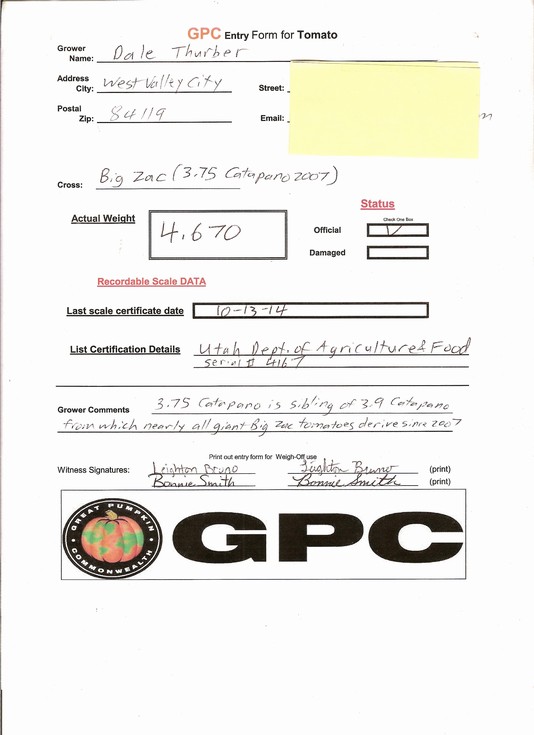 GPC Entry Form for Tomato
Grower Name: Dale Thurber
Address City: West Valley City Street:
Postal Zip: 84119 Email:
Cross: Big Zac (3.75 Catapano 2007)
Status
Actual Weight 4.670
Check One Box
Official
Damaged
Recordable Scale DATA
Last scale certificate date 10-13-14
List Certification Details Utah Dept. of Agriculture & Food
serial # 4167
Grower Comments 3.75 Catapano is sibling of 3.9 Catapano
from which nearly all giant Big Zac tomatoes derive since 2007
Print out entry form for Weigh-Off use
Witness Signatures: Leighton Bruno Leighton Bruno (print)
Bonnie Smith Bonnie Smith (print)
GREAT PUMPKIN COMMONWEALTH
GPC